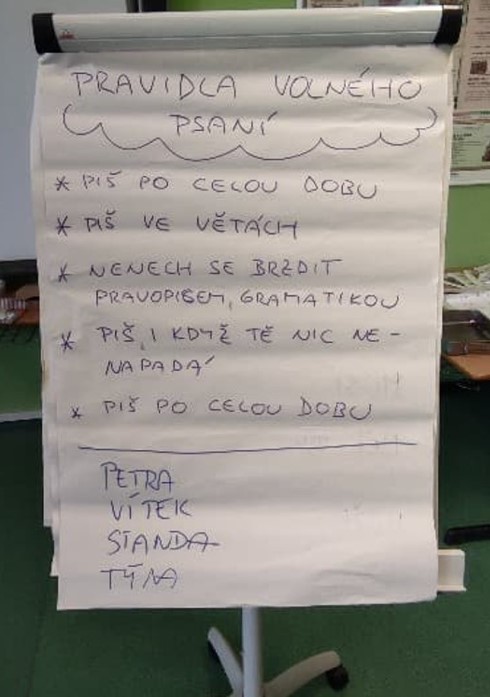 PRAVIDLA VOLNÉHO
PSANÍ
* PIŠ PO CELOU DOBU
* PIŠ VE VĚTÁCH
* NENECH SE BRZDIT
PRAVOPISEM, GRAMATIKOU
* PIŠ, I KDYŽ TĚ NIC NE-
NAPADÁ
* PIŠ PO CELOU DOBU
PETRA
VÍTEK
STANDA
TÝNA